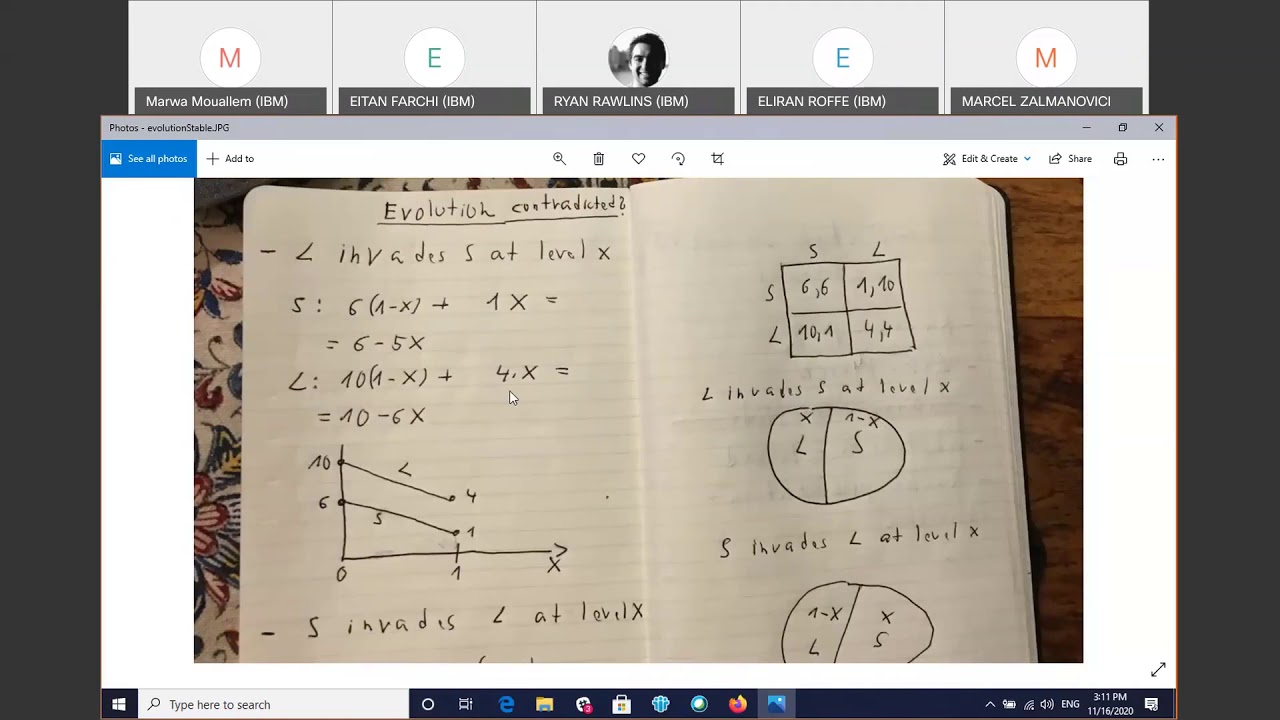 M
E
E
M
Marwa Mouallem (IBM)
EITAN FARCHI (IBM)
RYAN RAWLINS (IBM)
ELIRAN ROFFE (IBM)
MARCEL ZALMANOVICI
Photos - evolutionStable.JPG
See all photos
Add to
Edit & Create
Share
Evolution contradicted?
- L invades S at level x
S: 6(1-x) + 1x =
= 6-5x
L: 10(1-x) + 4.x =
= 10-6x
10
L
4
6
S
1
0
1
x
- S invades L at level x
S L
S 6,6 1,10
L 10,1 4,4
L invades S at level x
x 1-x
L S
S invades L at level x
1-x x
L S
Type here to search
3
ENG
3:11 PM
11/16/2020